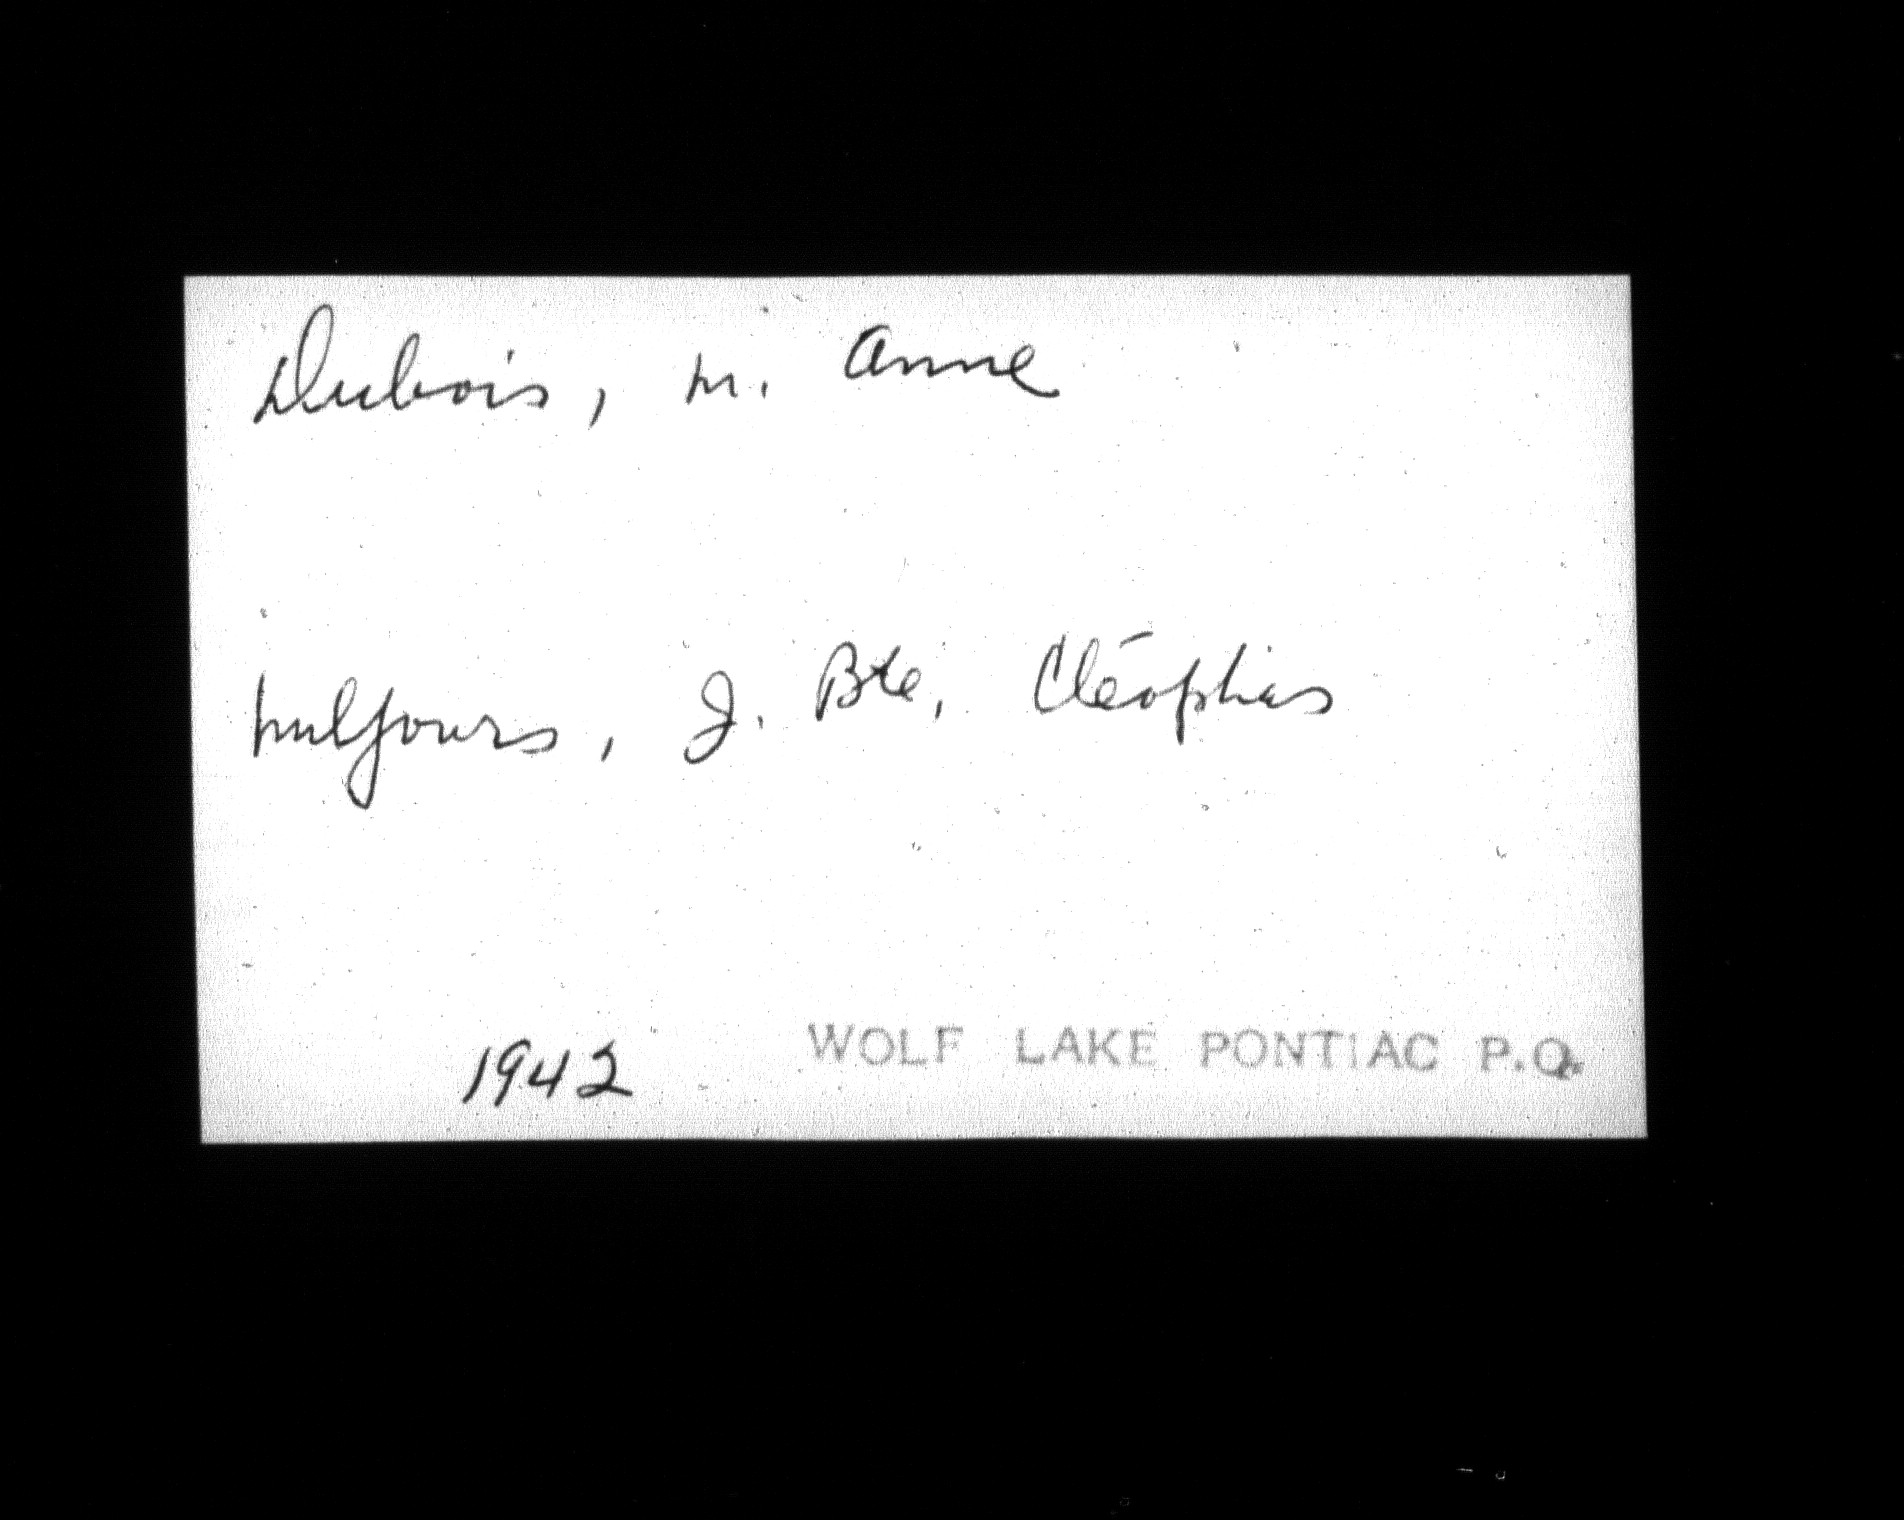 Dubois, M. Anne
Muljours, J. Bte, Cléophas
1942 WOLF LAKE PONTIAC P.Q.